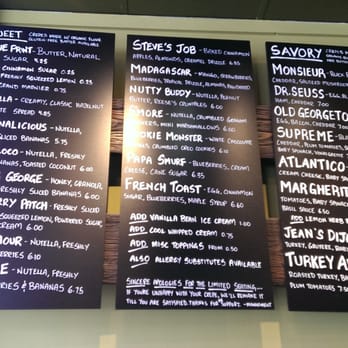 EET - CREPES MADE W/ ORGANIC FLOUR
GLUTEN-FREE BATTER AVAILABLE
UE PRINT - BUTTER, NATURAL
SUGAR 4.25
CINNAMON SUGAR 0.25
FRESHLY SQUEEZED LEMON 0.25
GRAND MARNIER 0.75
LLA - CREAMY, CLASSIC HAZELNUT
TE SPREAD
NALICIOUS - NUTELLA,
SLICED BANANAS 5.75
LOCO - NUTELLA, FRESHLY
BANANAS, TOASTED COCONUT 6.00
GEORGE - HONEY, GRANOLA,
FRESHLY SLICED BANANAS 6.00
RRY PATCH - FRESHLY SLICED
SQUEEZED LEMON, POWDERED SUGAR,
CREAM 6.00
OUR - NUTELLA, FRESHLY
BERRIES 6.10
E - NUTELLA, FRESHLY
BERRIES & BANANAS 6.75
STEVE'S JOB - BAKED CINNAMON
APPLES, ALMONDS, CARAMEL DRIZZLE 6.35
MADAGASCAR - MANGO, STRAWBERRIES,
BLUEBERRIES, TROPICAL DRIZZLE, ALMONDS
NUTTY BUDDY - NUTELLA, PEANUT
BUTTER, REESE'S CRUMBLES 6.00
SMORE - NUTELLA, CRUMBLED GRAHAM
CRACKERS, MINI MARSHMALLOWS 6.00
COOKIE MONSTER - WHITE CHOCOLATE
CRUMBLED OREO COOKIES 6.10
PAPA SMURF - BLUEBERRIES, CREAM
CHEESE, CANE SUGAR 6.35
FRENCH TOAST - EGG, CINNAMON
SUGAR, BLUEBERRIES, MAPLE SYRUP 6.60
ADD VANILLA BEAN ICE CREAM 1.00
ADD COOL WHIPPED CREAM 0.75
ADD MISC TOPPINGS FROM 0.50
ALSO ALLERGY SUBSTITUTES AVAILABLE
SINCERE APOLOGIES FOR THE LIMITED SEATING...
IF YOU'RE UNHAPPY WITH YOUR CREPE, WE'LL REMAKE IT
TILL YOU ARE SATISFIED. THANKS FOR SUPPORT. - MANAGEMENT
SAVORY - CREPES
MONSIEUR -
CHEDDAR
DR. SEUSS - EGG,
HAM, CHEDDAR 7.00
OLD GEORGETO
CHEDDAR
SUPREME -
CHEDDAR, TOMATOES,
BABY SPINACH
ATLANTICO -
CREAM CHEESE, BABY
MARGHERIT
TOMATOES, BABY SPINACH
BASIL SAUCE 6.50
ADD LEMON HERB
JEAN'S DIJO
TURKEY
TURKEY A
ROASTED TURKEY,
PLUM TOMATOES 7.50